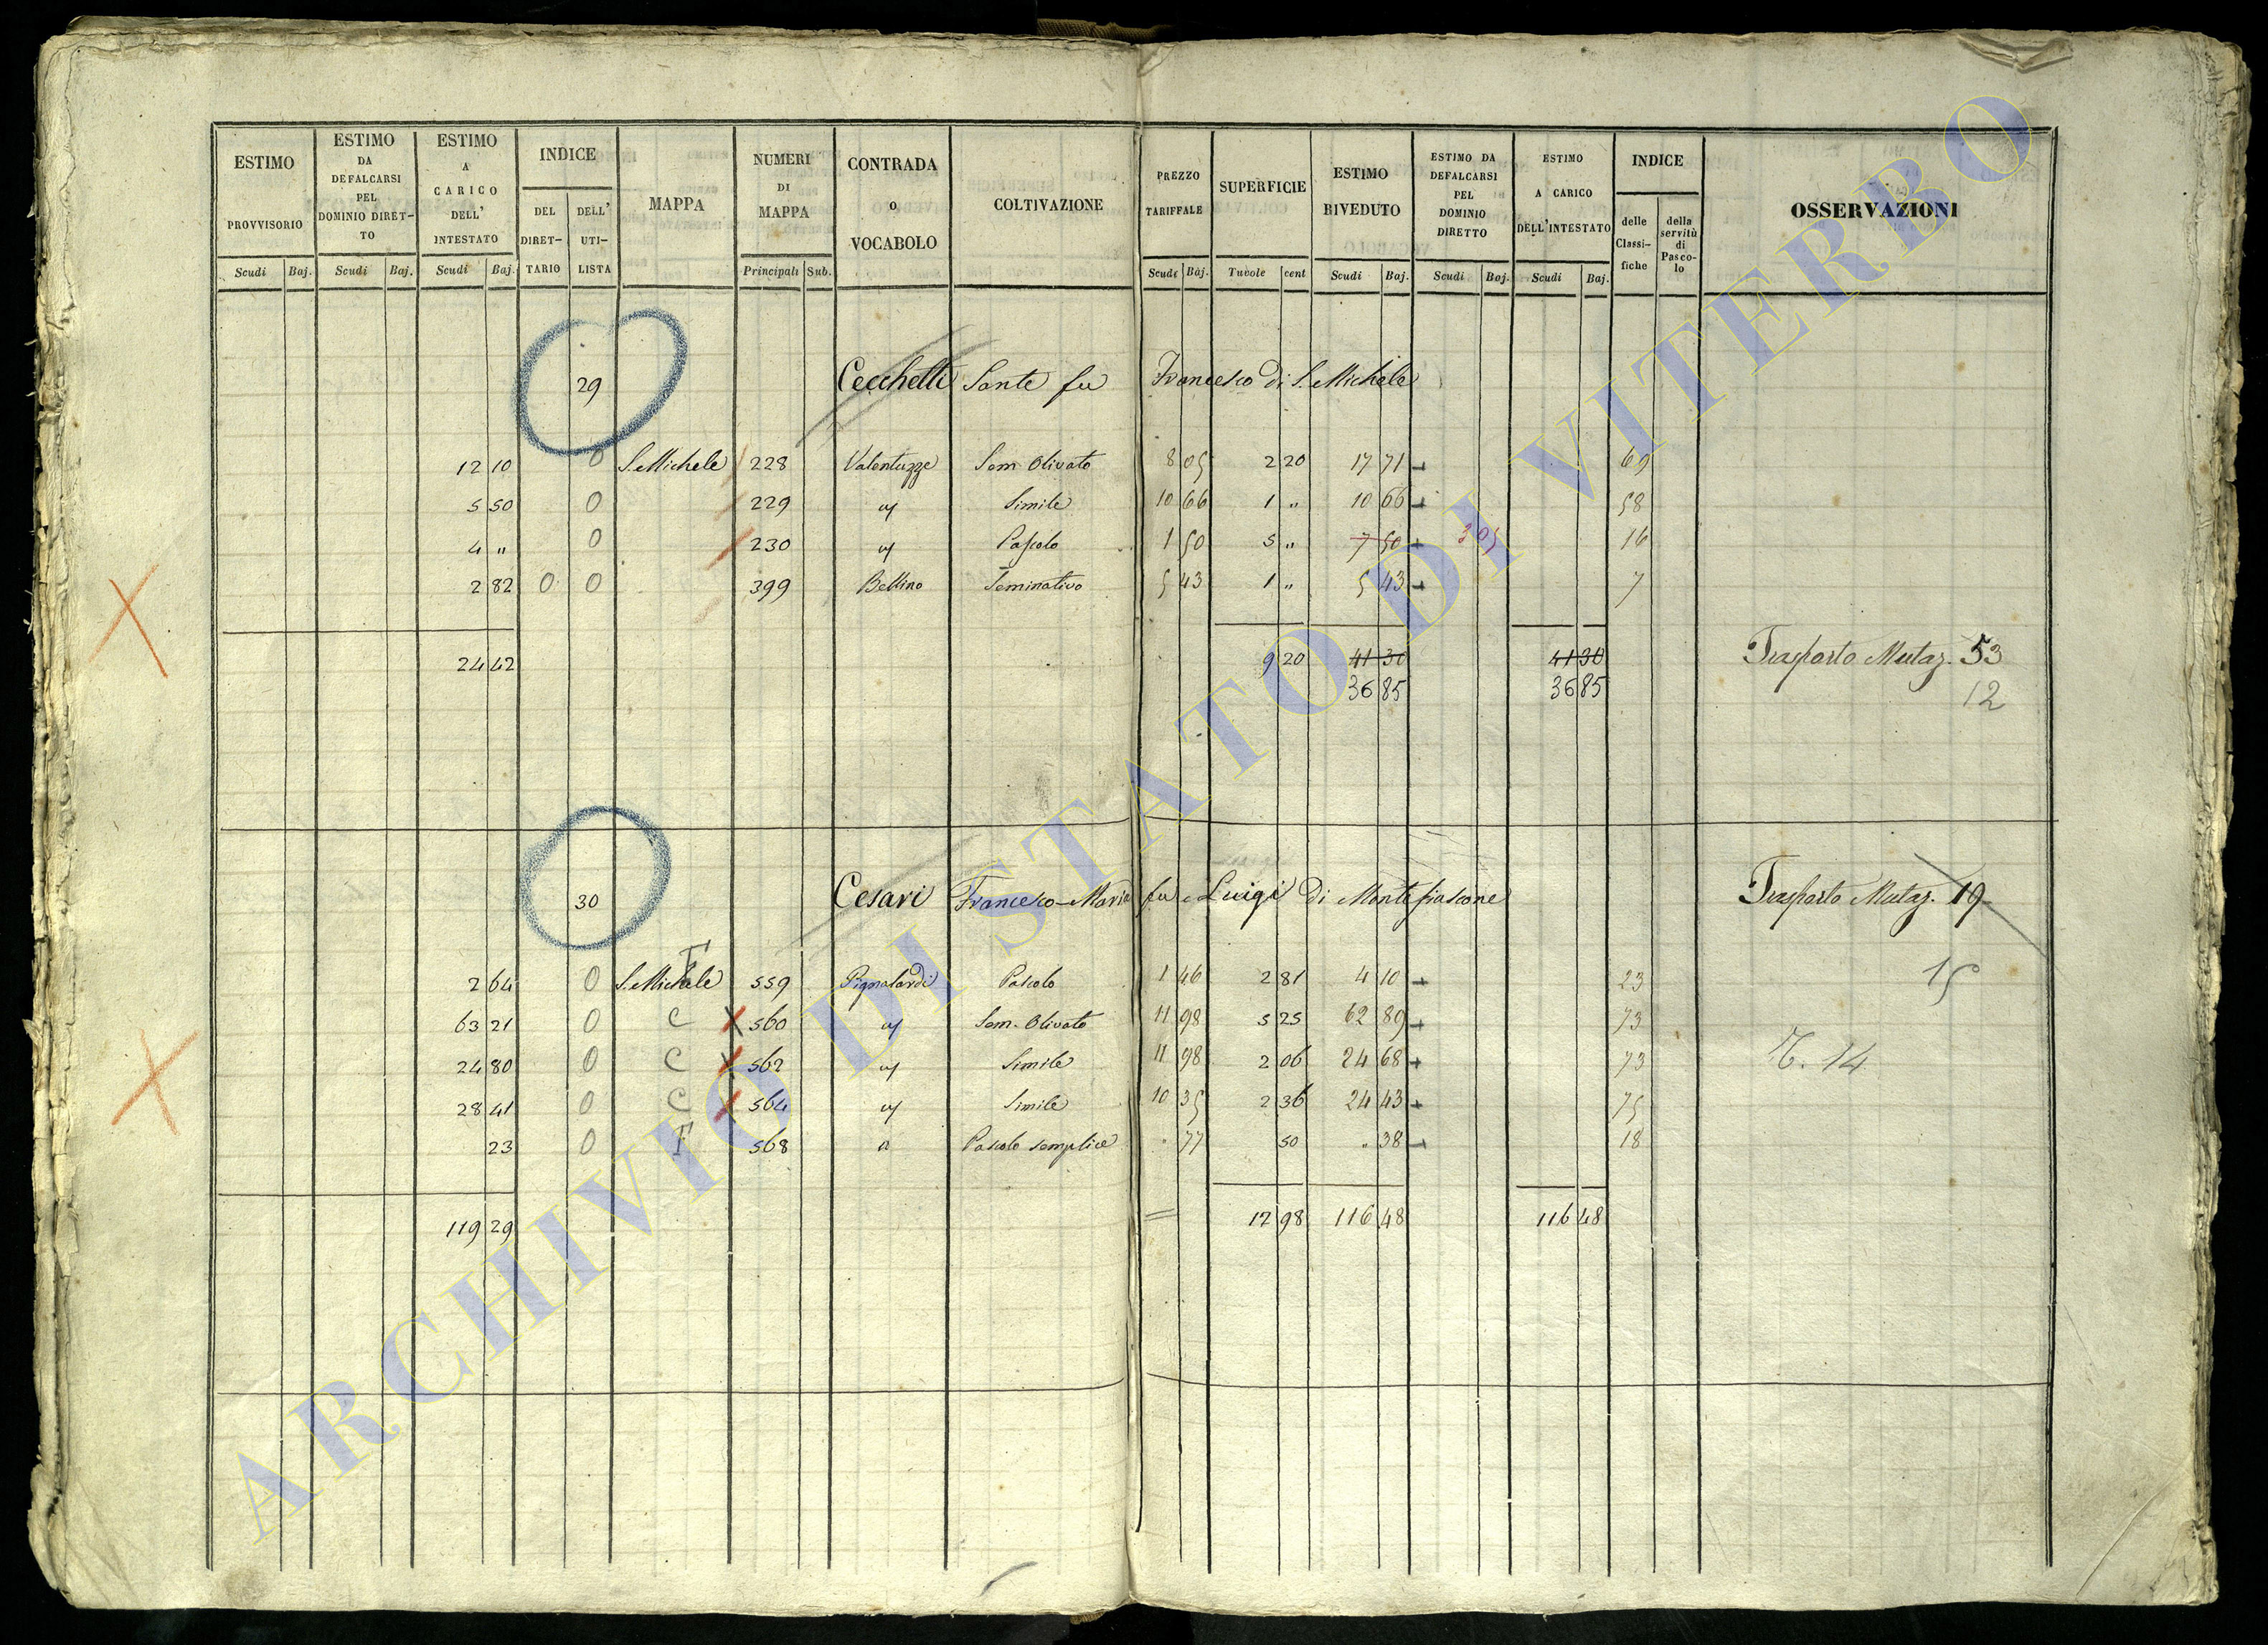 ESTIMO PROVVISORIO
ESTIMO DA DEFALCARSI PEL DOMINIO DIRET-TO
ESTIMO A CARICO DELL' INTESTATO
INDICE
DEL DIRET-TARIO
DELL' UTI-LISTA
MAPPA
NUMERI DI MAPPA
CONTRADA O VOCABOLO
COLTIVAZIONE
PREZZO TARIFFALE
SUPERFICIE
ESTIMO RIVEDUTO
ESTIMO DA DEFALCARSI PEL DOMINIO DIRETTO
ESTIMO A CARICO DELL'INTESTATO
INDICE
delle Classi-fiche
della servitù di Pasco-lo
OSSERVAZIONI
Scudi Baj. Scudi Baj. Scudi Baj. Principali Sub. Scudi Baj. Tuvole cent Scudi Baj. Scudi Baj. Scudi Baj.
29 Cecchetti Sante fu Francesco di S. Michele
12 10 0 S. Michele 228 Valentuzze Sem. Olivato 8 05 2 20 17 71 69
5 50 0 229 " Simile 10 66 1 " 10 66 58
4 " 0 230 " Pascolo 1 50 5 " 7 50 3 05 16
2 82 0 0 399 Bellino Seminativo 5 43 1 " 5 43 7
24 42 9 20 41 30 41 30 Trasporto Mutaz. 53
36 85 36 85 12
30 Cesari Francesco-Maria fu Luigi di Montefiascone Trasporto Mutaz. 19
F
2 64 0 S. Michele 559 Pignalardi Pascolo 1 46 2 81 4 10 23 15
63 21 0 C 560 " Sem. Olivato 11 98 5 25 62 89 73
24 80 0 C 562 " Simile 11 98 2 06 24 68 73 T. 14
28 41 0 C 564 " Simile 10 35 2 36 24 43 75
23 0 F 568 " Pascolo semplice 77 50 38 18
119 29 12 98 116 48 116 48
ARCHIVIO DI STATO DI VITERBO